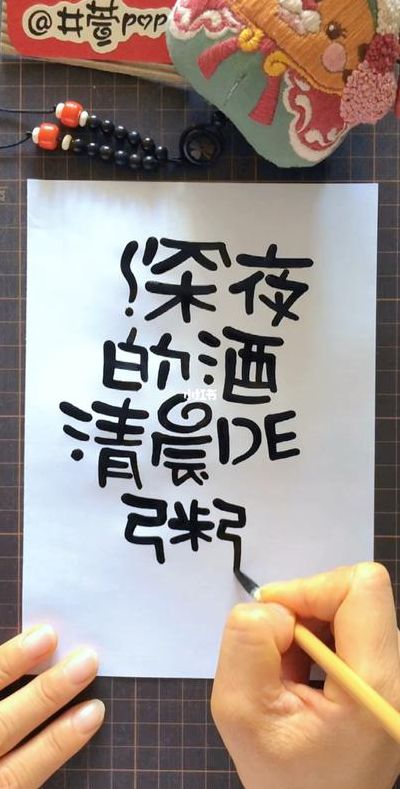 @井萱pop
深夜
的酒
小红书
清晨DE
粥